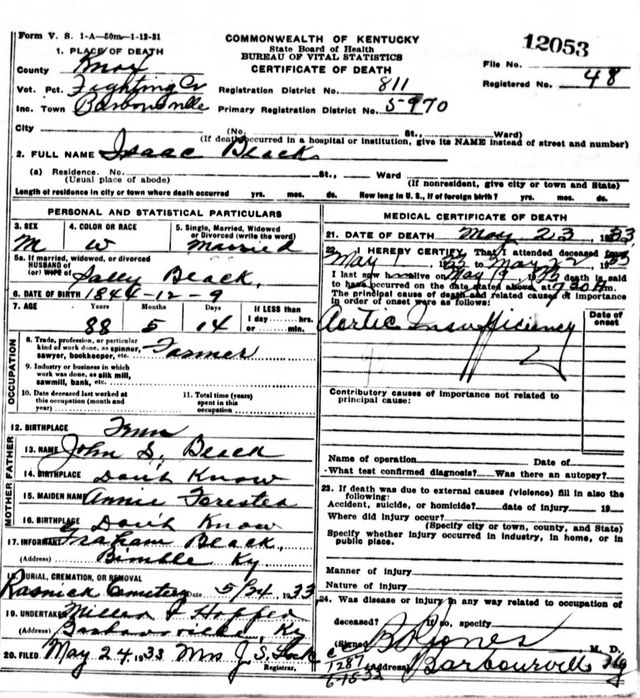 Form V. S. 1-A—50m—1-12-31
COMMONWEALTH OF KENTUCKY
State Board of Health
BUREAU OF VITAL STATISTICS
CERTIFICATE OF DEATH
12053
File No.
Registered No. 48
1. PLACE OF DEATH
County Knox
Vot. Pct. Fighting Cr
Registration District No. 811
Inc. Town Barbourville
Primary Registration District No. 5970
City (No. St., Ward)
(If death occurred in a hospital or institution, give its NAME instead of street and number)
2. FULL NAME Isaac Black
(a) Residence. No. St., Ward
(Usual place of abode) (If nonresident, give city or town and State)
Length of residence in city or town where death occurred yrs. mos. ds. How long in U. S., if of foreign birth? yrs. mos. ds.
PERSONAL AND STATISTICAL PARTICULARS
3. SEX
M
4. COLOR OR RACE
W
5. Single, Married, Widowed or Divorced (write the word)
Married
5a. If married, widowed, or divorced
HUSBAND of
(or) WIFE of Sally Black
6. DATE OF BIRTH 1844-12-9
7. AGE Years Months Days If LESS than
88 5 14 1 day, hrs. or min.
OCCUPATION
8. Trade, profession, or particular
kind of work done, as spinner,
sawyer, bookkeeper, etc. Farmer
9. Industry or business in which
work was done, as silk mill,
sawmill, bank, etc.
10. Date deceased last worked at
this occupation (month and
year)
11. Total time (years)
spent in this
occupation
12. BIRTHPLACE Tenn
FATHER
13. NAME John S. Black
14. BIRTHPLACE Don't Know
MOTHER
15. MAIDEN NAME Annie Forester
16. BIRTHPLACE Don't Know
17. INFORMANT Graham Black,
(Address) Bimble Ky
18. BURIAL, CREMATION, OR REMOVAL
Cemetery Date 5/24 1933
19. UNDERTAKER Miller & Hopper
(Address) Barbourville, Ky
20. FILED May 24 1933 Mrs J. S.
Registrar.
MEDICAL CERTIFICATE OF DEATH
21. DATE OF DEATH May 23 1933
22. I HEREBY CERTIFY, That I attended deceased from
May 1 to May 22
I last saw him alive on May 19 death is said
to have occurred on the date stated above, at 730 A
The principal cause of death and related causes of importance
in order of onset were as follows:
Date of onset
Aortic Insufficiency
Contributory causes of importance not related to
principal cause:
Name of operation Date of
What test confirmed diagnosis? Was there an autopsy?
23. If death was due to external causes (violence) fill in also the
following:
Accident, suicide, or homicide? date of injury 19
Where did injury occur?
(Specify city or town, county, and State)
Specify whether injury occurred in industry, in home, or in
public place.
Manner of injury
Nature of injury
24. Was disease or injury in any way related to occupation of
deceased? If so, specify
(Signed) Jones M. D.
(Address) Barbourville Ky
1287